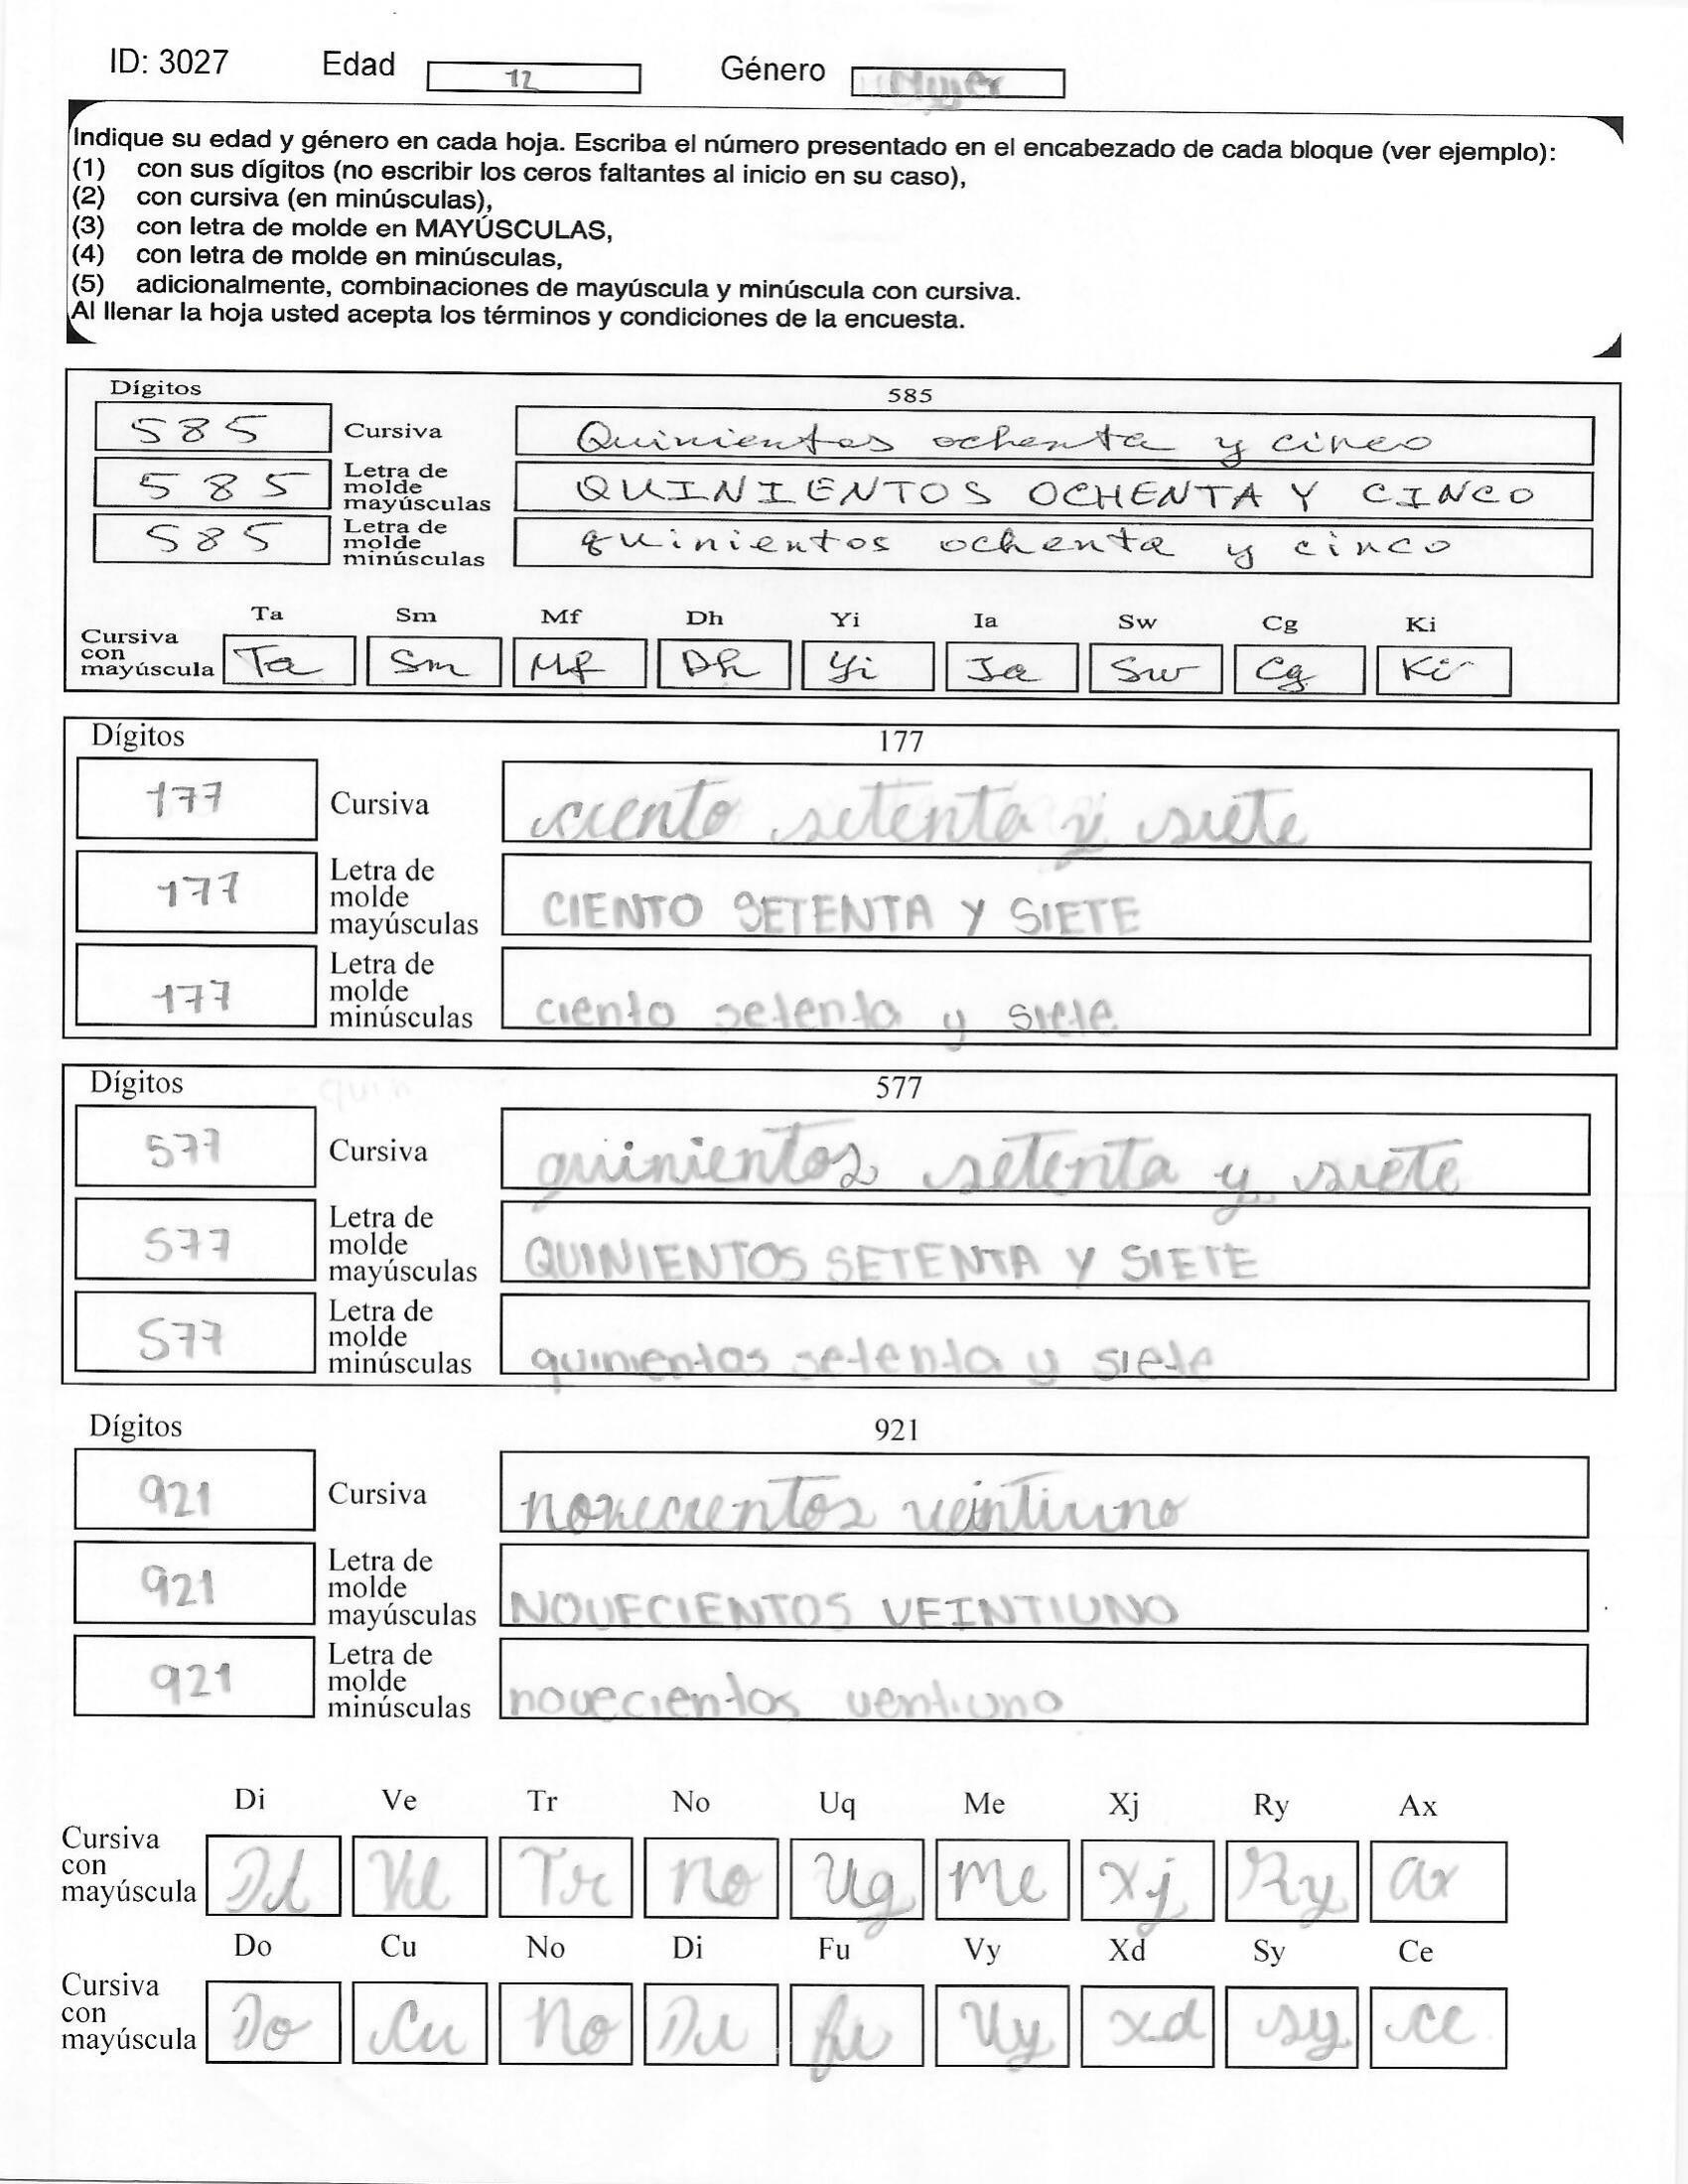 ID: 3027 Edad 12 Género Mujer
Indique su edad y género en cada hoja. Escriba el número presentado en el encabezado de cada bloque (ver ejemplo):
(1) con sus dígitos (no escribir los ceros faltantes al inicio en su caso),
(2) con cursiva (en minúsculas),
(3) con letra de molde en MAYÚSCULAS,
(4) con letra de molde en minúsculas,
(5) adicionalmente, combinaciones de mayúscula y minúscula con cursiva.
Al llenar la hoja usted acepta los términos y condiciones de la encuesta.
Dígitos 585
585 Cursiva Quinientos ochenta y cinco
585 Letra de molde mayúsculas QUINIENTOS OCHENTA Y CINCO
585 Letra de molde minúsculas quinientos ochenta y cinco
Ta Sm Mf Dh Yi Ia Sw Cg Ki
Cursiva con mayúscula Ta Sm Mf Dh Yi Ia Sw Cg Ki
Dígitos 177
177 Cursiva ciento setenta y siete
177 Letra de molde mayúsculas CIENTO SETENTA Y SIETE
177 Letra de molde minúsculas ciento setenta y siete
Dígitos quin 577
577 Cursiva quinientos setenta y siete
577 Letra de molde mayúsculas QUINIENTOS SETENTA Y SIETE
577 Letra de molde minúsculas quinientos setenta y siete
Dígitos 921
921 Cursiva novecientos veintiuno
921 Letra de molde mayúsculas NOVECIENTOS VEINTIUNO
921 Letra de molde minúsculas novecientos ventiuno
Di Ve Tr No Uq Me Xj Ry Ax
Cursiva con mayúscula Di Ve Tr No Ug Me Xj Ry ax
Do Cu No Di Fu Vy Xd Sy Ce
Cursiva con mayúscula Do Cu No Di fu Vy xd sy ce